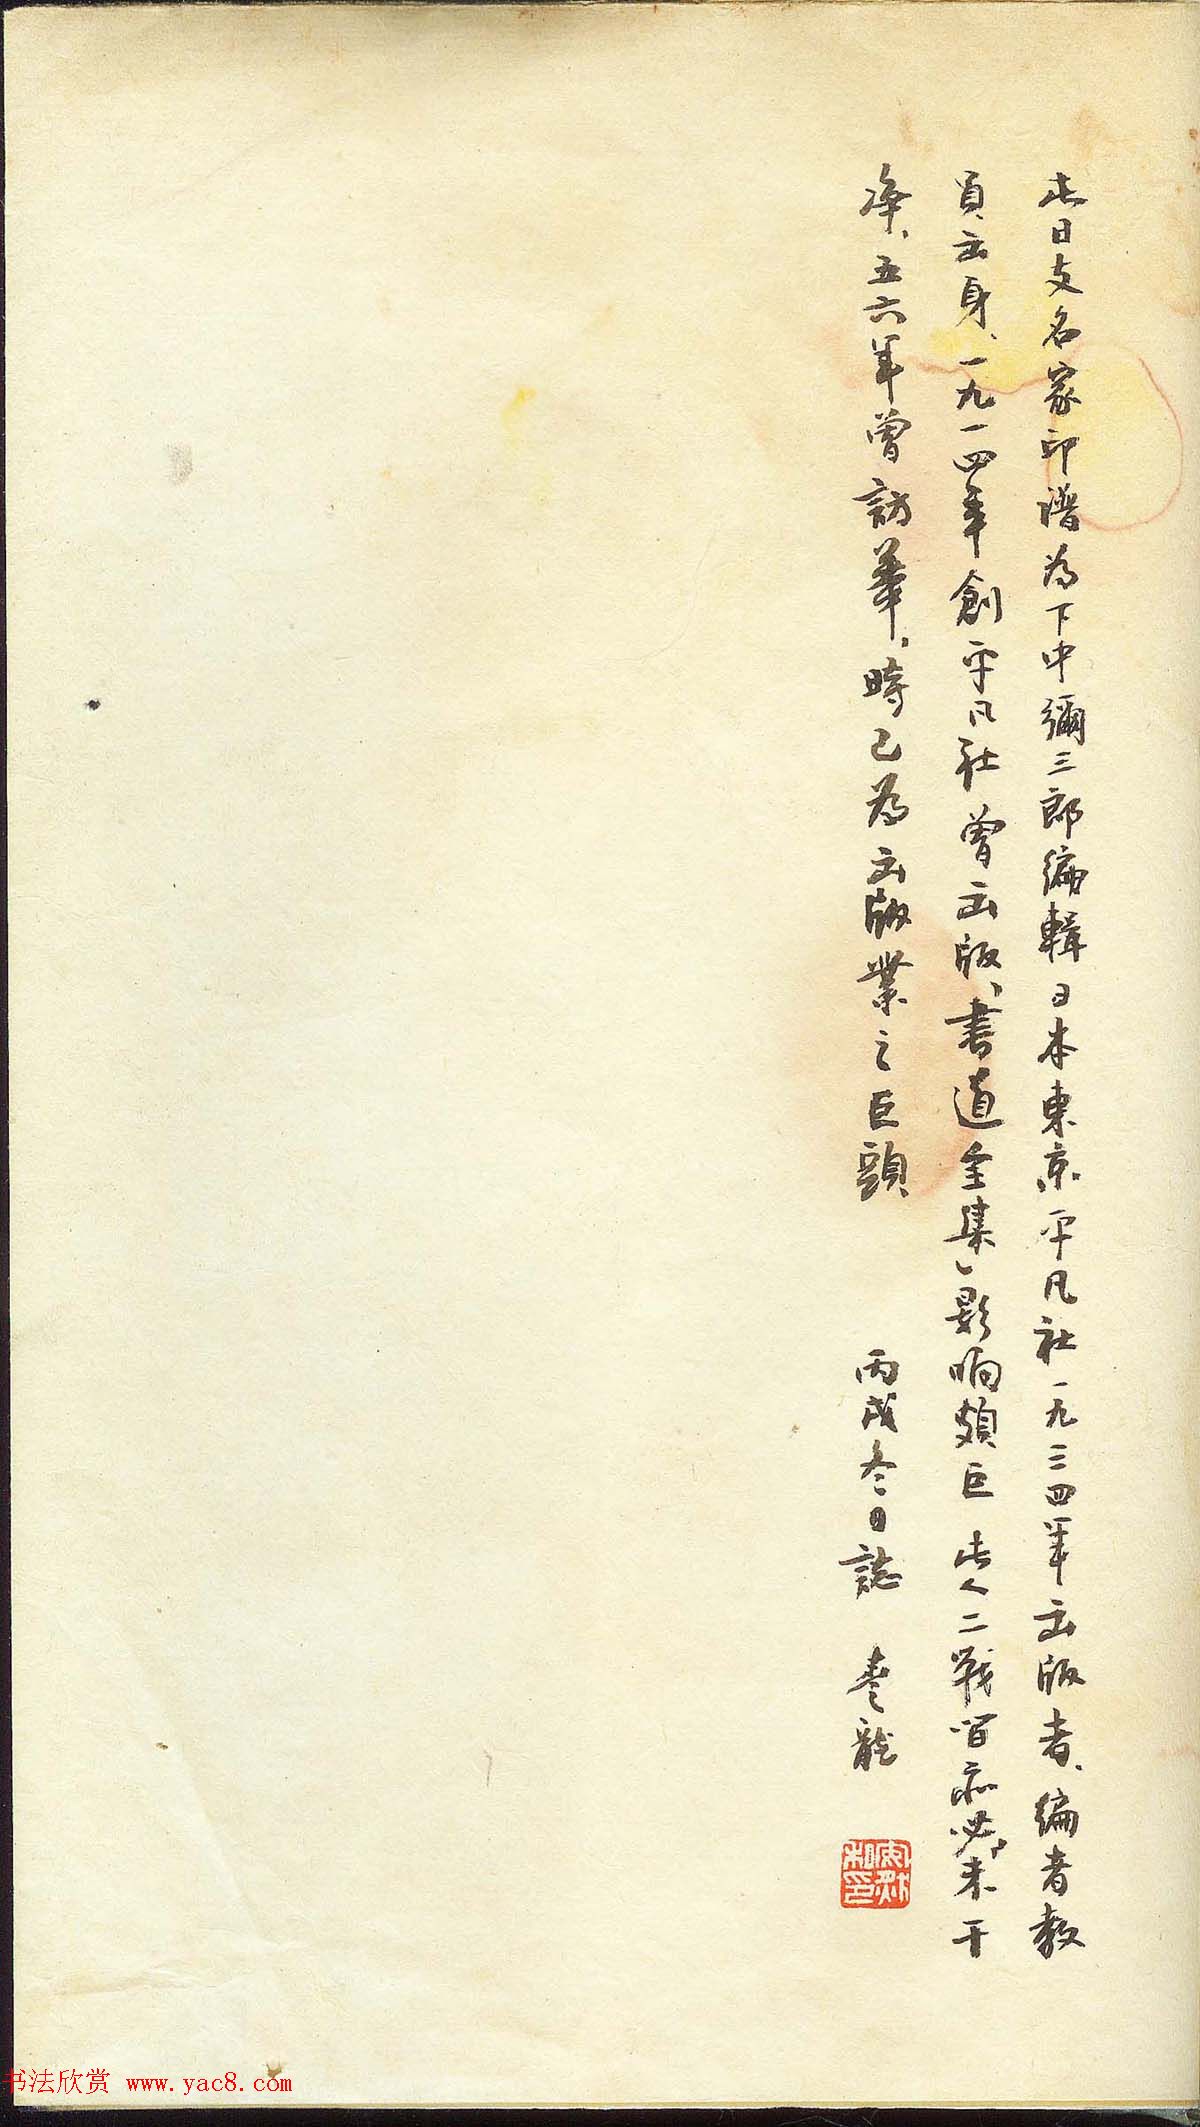 此日支名家印譜为下中彌三郎编輯日本東京平凡社一九三四年出版者、编者教
員出身、一九一四年創平凡社曾出版、書道全集」影响頗巨此人二戰留亦必未干
净、五六年曾訪華、時已为出版業之巨頭
丙戌冬日誌 龍
书法欣赏 www.yac8.com